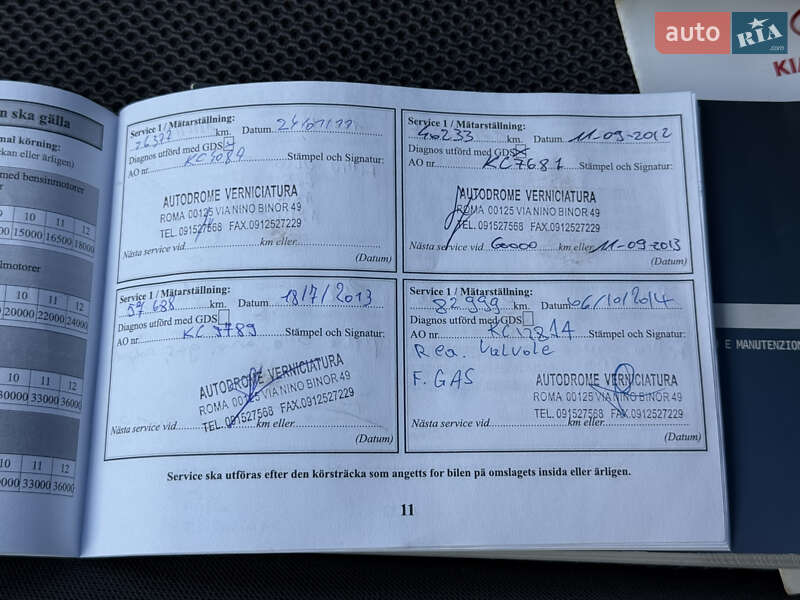 auto RIA .com
KIA
n ska gälla
mal körning:
ckan eller årligen)
med bensinmotorer
10 11 12
15000 16500 18000
lmotorer
10 11 12
20000 22000 24000
10 11 12
30000 33000 36000
10 11 12
33000 36000
Service 1 / Mätarställning:
26322 km. Datum
Diagnos utförd med GDS
AO nr. Stämpel och Signatur:
AUTODROME VERNICIATURA
ROMA 00125 VIA NINO BINOR 49
TEL. 091527568 FAX.0912527229
Nästa service vid km eller
(Datum)
Service 1 / Mätarställning:
40233 km. Datum 11-09-2012
Diagnos utförd med GDS
AO nr. KC7681 Stämpel och Signatur:
AUTODROME VERNICIATURA
ROMA 00125 VIA NINO BINOR 49
TEL. 091527568 FAX.0912527229
Nästa service vid 60000 km eller 11-09-2013
(Datum)
Service 1 / Mätarställning:
57 688 km. Datum 18/7/2013
Diagnos utförd med GDS
AO nr. KC 9789 Stämpel och Signatur:
AUTODROME VERNICIATURA
ROMA 00125 VIA NINO BINOR 49
TEL. 091527568 FAX.0912527229
Nästa service vid km eller
(Datum)
Service 1 / Mätarställning:
82999 km. Datum 06/10/2014
Diagnos utförd med GDS
AO nr. Stämpel och Signatur:
Rea. Valvole
F. GAS
AUTODROME VERNICIATURA
ROMA 00125 VIA NINO BINOR 49
TEL. 091527568 FAX.0912527229
Nästa service vid km eller
(Datum)
Service ska utföras efter den körsträcka som angetts for bilen på omslagets insida eller årligen.
11
E MANUTENZION